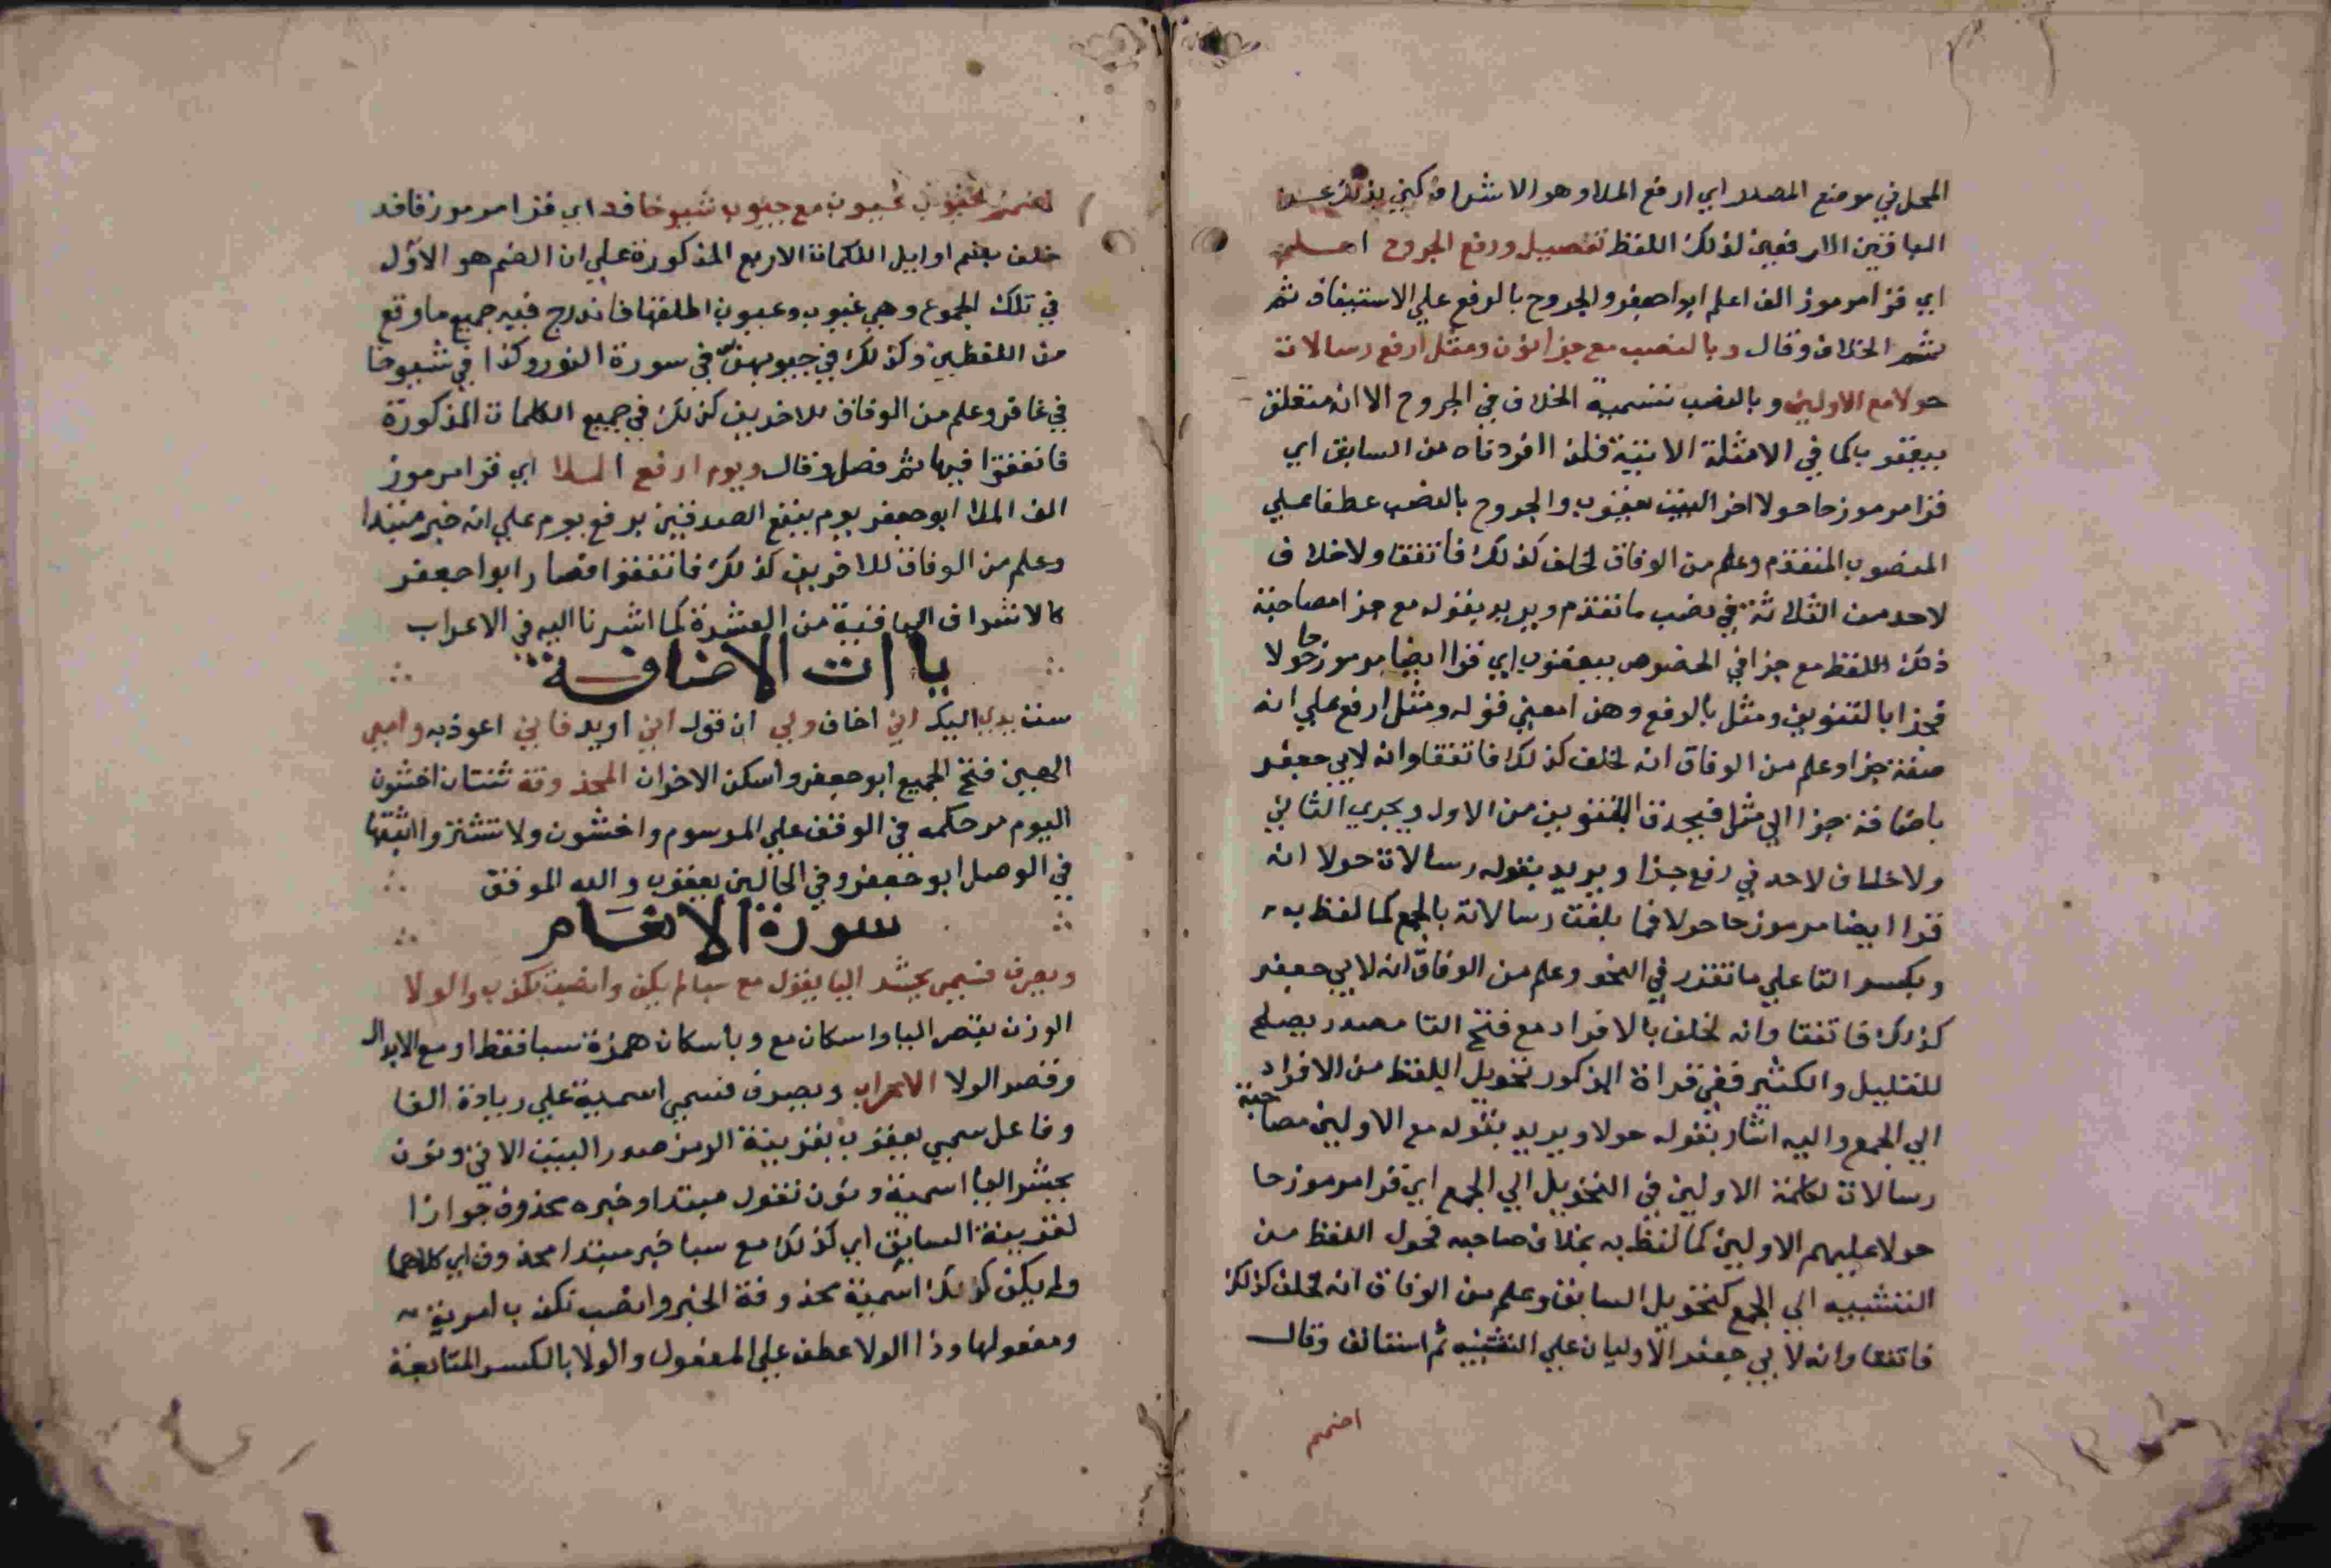 المحل في موضع المصدر اي ارفع الملا وهو الاشراف كني بذلك عن
الباقين الارفعين لذلك اللفظ تفصيل ورفع الجروح اعلم
اي قرا مرموز الف اعلم ابو اجعفر والجروح بالرفع علي الاستيناف ثم
ثم الخلاف وقال وبالنصب مع جزا نون ومثل ارفع رسالات
حولا مع الاولين وبالنصب تتمية الخلاف في الجروح الا انه متعلق
بيعقوب كما في الامثلة الاتية فلذا افردناه من السابق اي
قرا مرموز حا حولا اخر البيت يعقوب والجروح بالنصب عطفا علي
المنصوب المتقدم وعلم من الوفاق لخلف كذلك فاتفقا ولا خلاف
لاحد من الثلاثة في نصب ما تقدم ويريد بقوله مع جزا مصاحبة
ذلك اللفظ مع جزا في الخصوص بيعقوب اي قرا ايضا مرموز حا حولا
فجزا بالتنوين ومثل بالرفع وهذا معني قوله ومثل ارفع علي انه
صفة جزا وعلم من الوفاق انه لخلف كذلك فاتفقا وانه لابي جعفر
باضافة جزا الي مثل فيحذف التنوين من الاول ويجري الثاني
ولا خلاف لاحد في رفع جزا ويريد بقوله رسالات حولا انه
قرا ايضا مرموز حا حولا فما بلغت رسالاته بالجمع كما لفظ به
وبكسر التا علي ما تقرر في النحو وعلم من الوفاق انه لابي جعفر
كذلك فاتفقا وانه لخلف بالافراد مع فتح التا مصدر يصلح
للقليل والكثير ففي قراة المذكور تحويل اللفظ من الافراد
الي الجمع واليه اشار بقوله حولا ويريد بقوله مع الاولين مصاحبة
رسالات لكلمة الاولين في التحويل الي الجمع اي قرا مرموز حا
حولا عليهم الاولين كما لفظ به بخلاف صاحبه فحول اللفظ من
التثنيه الي الجمع كتحويل السابق وعلم من الوفاق انه لخلف كذلك
فاتفقا وانه لابي جعفر الاوليان علي التثنيه ثم استانف وقال
اضمم
اضمم غيوب عيون مع جيوب شيوخا فد اي قرا مرموز فا فد
خلف بضم اوايل الكلمات الاربع المذكورة علي ان الضم هو الاول
في تلك الجموع وهي غيوب وعيون اطلقها فاندرج فيه جميع ما وقع
من اللفظين وكذلك في جيوبهن في سورة النور وكذا في شيوخا
في غافر وعلم من الوفاق للاخرين كذلك في جميع الكلمات المذكورة
فاتفقوا فيها ثم فصل وقال ويوم ارفع الملا اي قرا مرموز
الف الملا ابو جعفر يوم ينفع الصدقين برفع يوم علي انه خبر مبتدا
وعلم من الوفاق للاخرين كذلك فاتفقوا فصار ابوا جعفر
كالاشراف الباقية من العشرة كما اشرنا اليه في الاعراب
ياات الاضافة
ست يدي اليك اني اخاف ولي ان قول اني اريد فاني اعوذبه وامي
الهين فتح الجميع ابو جعفر واسكن الاخوان المحذوفة ثنتان اخشون
اليوم مر حكمه في الوقف علي المرسوم واخشون ولا تشتروا اثبتها
في الوصل ابو جعفر وفي الحالين يعقوب والله الموفق
سورة الانعام
ويصرف فسمي يحشر اليا يقول مع سبا لم يكن وانصب نكذب والولا
الوزن بقصر اليا واسكان مع وباسكان همزة سبا فقط او مع الابدال
وقصر الولا الاعراب ويصرف فسمي اسمية علي زيادة الفا
وفاعل سمي يعقوب بقرينة الرمز صدر البيت الاتي ونون
يحشر اليا اسمية ونون نقول مبتدا وخبره محذوف جوازا
لقرينة السابق اي كذلك مع سبا خبر مبتدا محذوف اي كلاهما
ولم يكن كذلك اسمية محذوفة الخبر وانصب نكذب امرية
ومفعولها وذا الولا عطف علي المفعول والولا بالكسر المتابعة